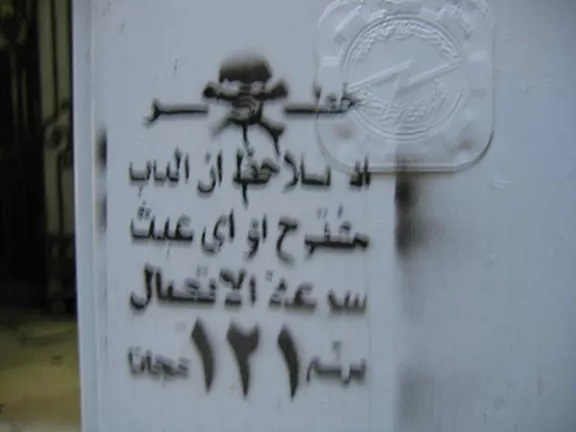 خطـــر
ان الباب
مفتوح او اى عبث
سرعة الاتصال
برقم ١٢١ مجانا